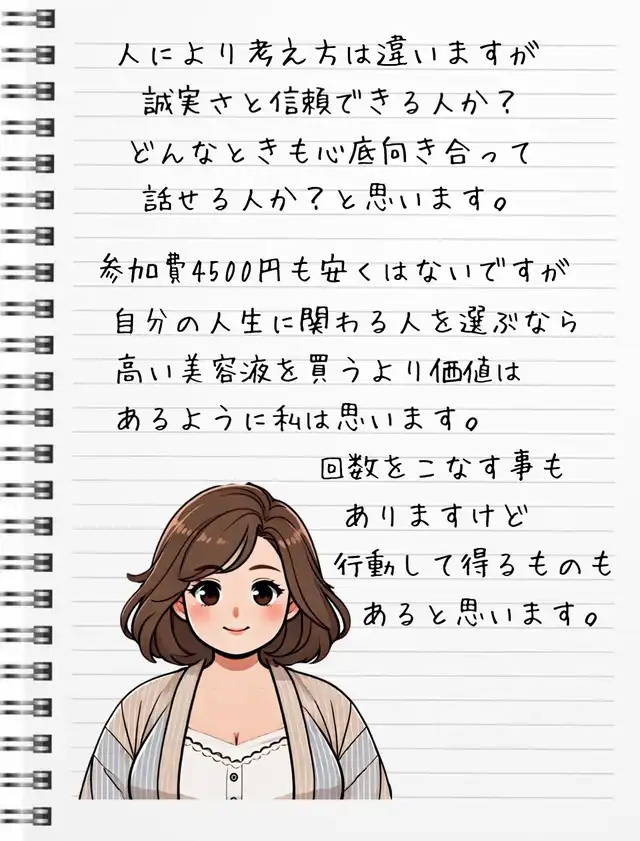 人により考え方は違いますが
誠実さと信頼できる人か？
どんなときも心底向き合って
話せる人か？と思います。
参加費4500円も安くはないですが
自分の人生に関わる人を選ぶなら
高い美容液を買うより価値は
あるように私は思います。
回数をこなす事も
ありますけど
行動して得るものも
あると思います。